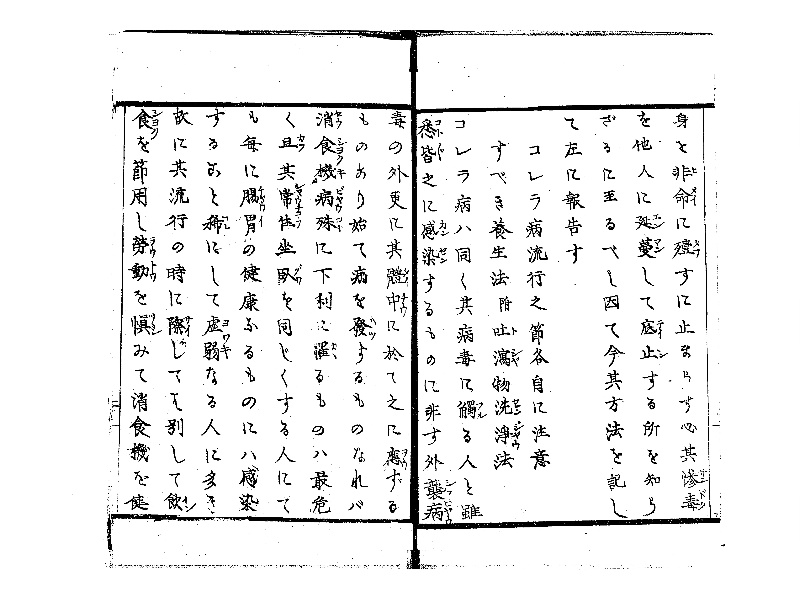 身を非命に殪すに止まらす必其惨毒
を他人に延蔓して底止する所を知ら
ざるに至るべし因て今其方法を記し
て左に報告す
コレラ病流行之節各自に注意
すべき養生法附吐瀉物洗滌法
コレラ病ハ同く其病毒に觸る人と雖
悉皆之に感染するものに非す外襲病
毒の外更に其體中に於て之に應ずる
ものあり始て病を發するものなれバ
消食機病殊に下利に罹るものハ最危
く且其常住坐臥を同じくする人にて
も毎に腸胃の健康なるものにハ感染
すること稀にして虚弱なる人に多き
故に其流行の時に際してハ別して飲
食を節用し勞動を慎みて消食機を健